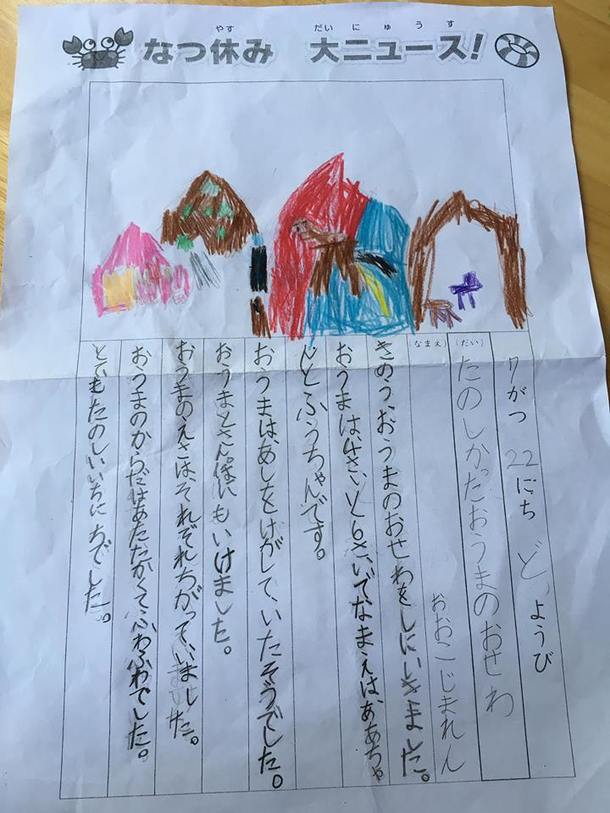 なつ休み 大ニュース!
やす だいにゅうす
7がつ 22にち ど ようび
(だい)
たのしかったおうまのおせわ
(なまえ)
おおこじまれん
きのう、おうまのおせわをしにいきました。
おうまは、4さいと6さいでなまえは、ああちゃ
んとふうちゃんです。
おうまは、あしをけがして、いたそうでした。
おうまとさんぽにもいけました。
おうまのえさは、それぞれちがっていました。
おうまのからだはあたたかくて、ふわふわでした。
とてもたのしいいちにちでした。